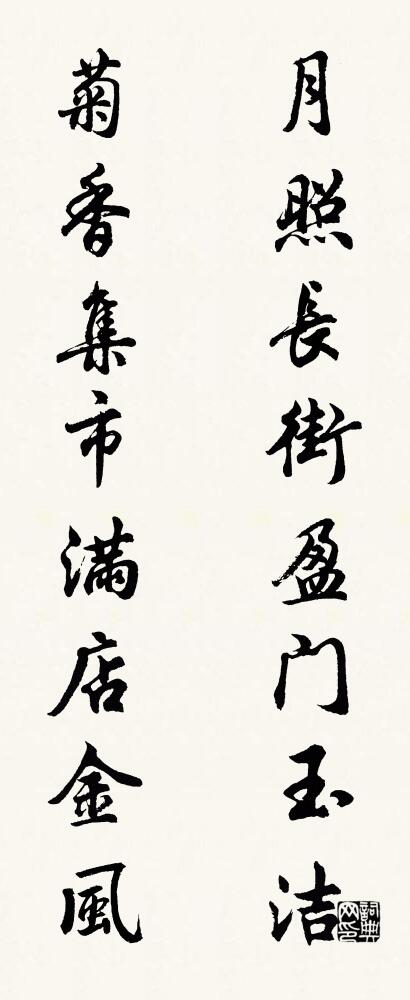 月照長街盈门玉洁
菊香集市满店金風
詞典网印